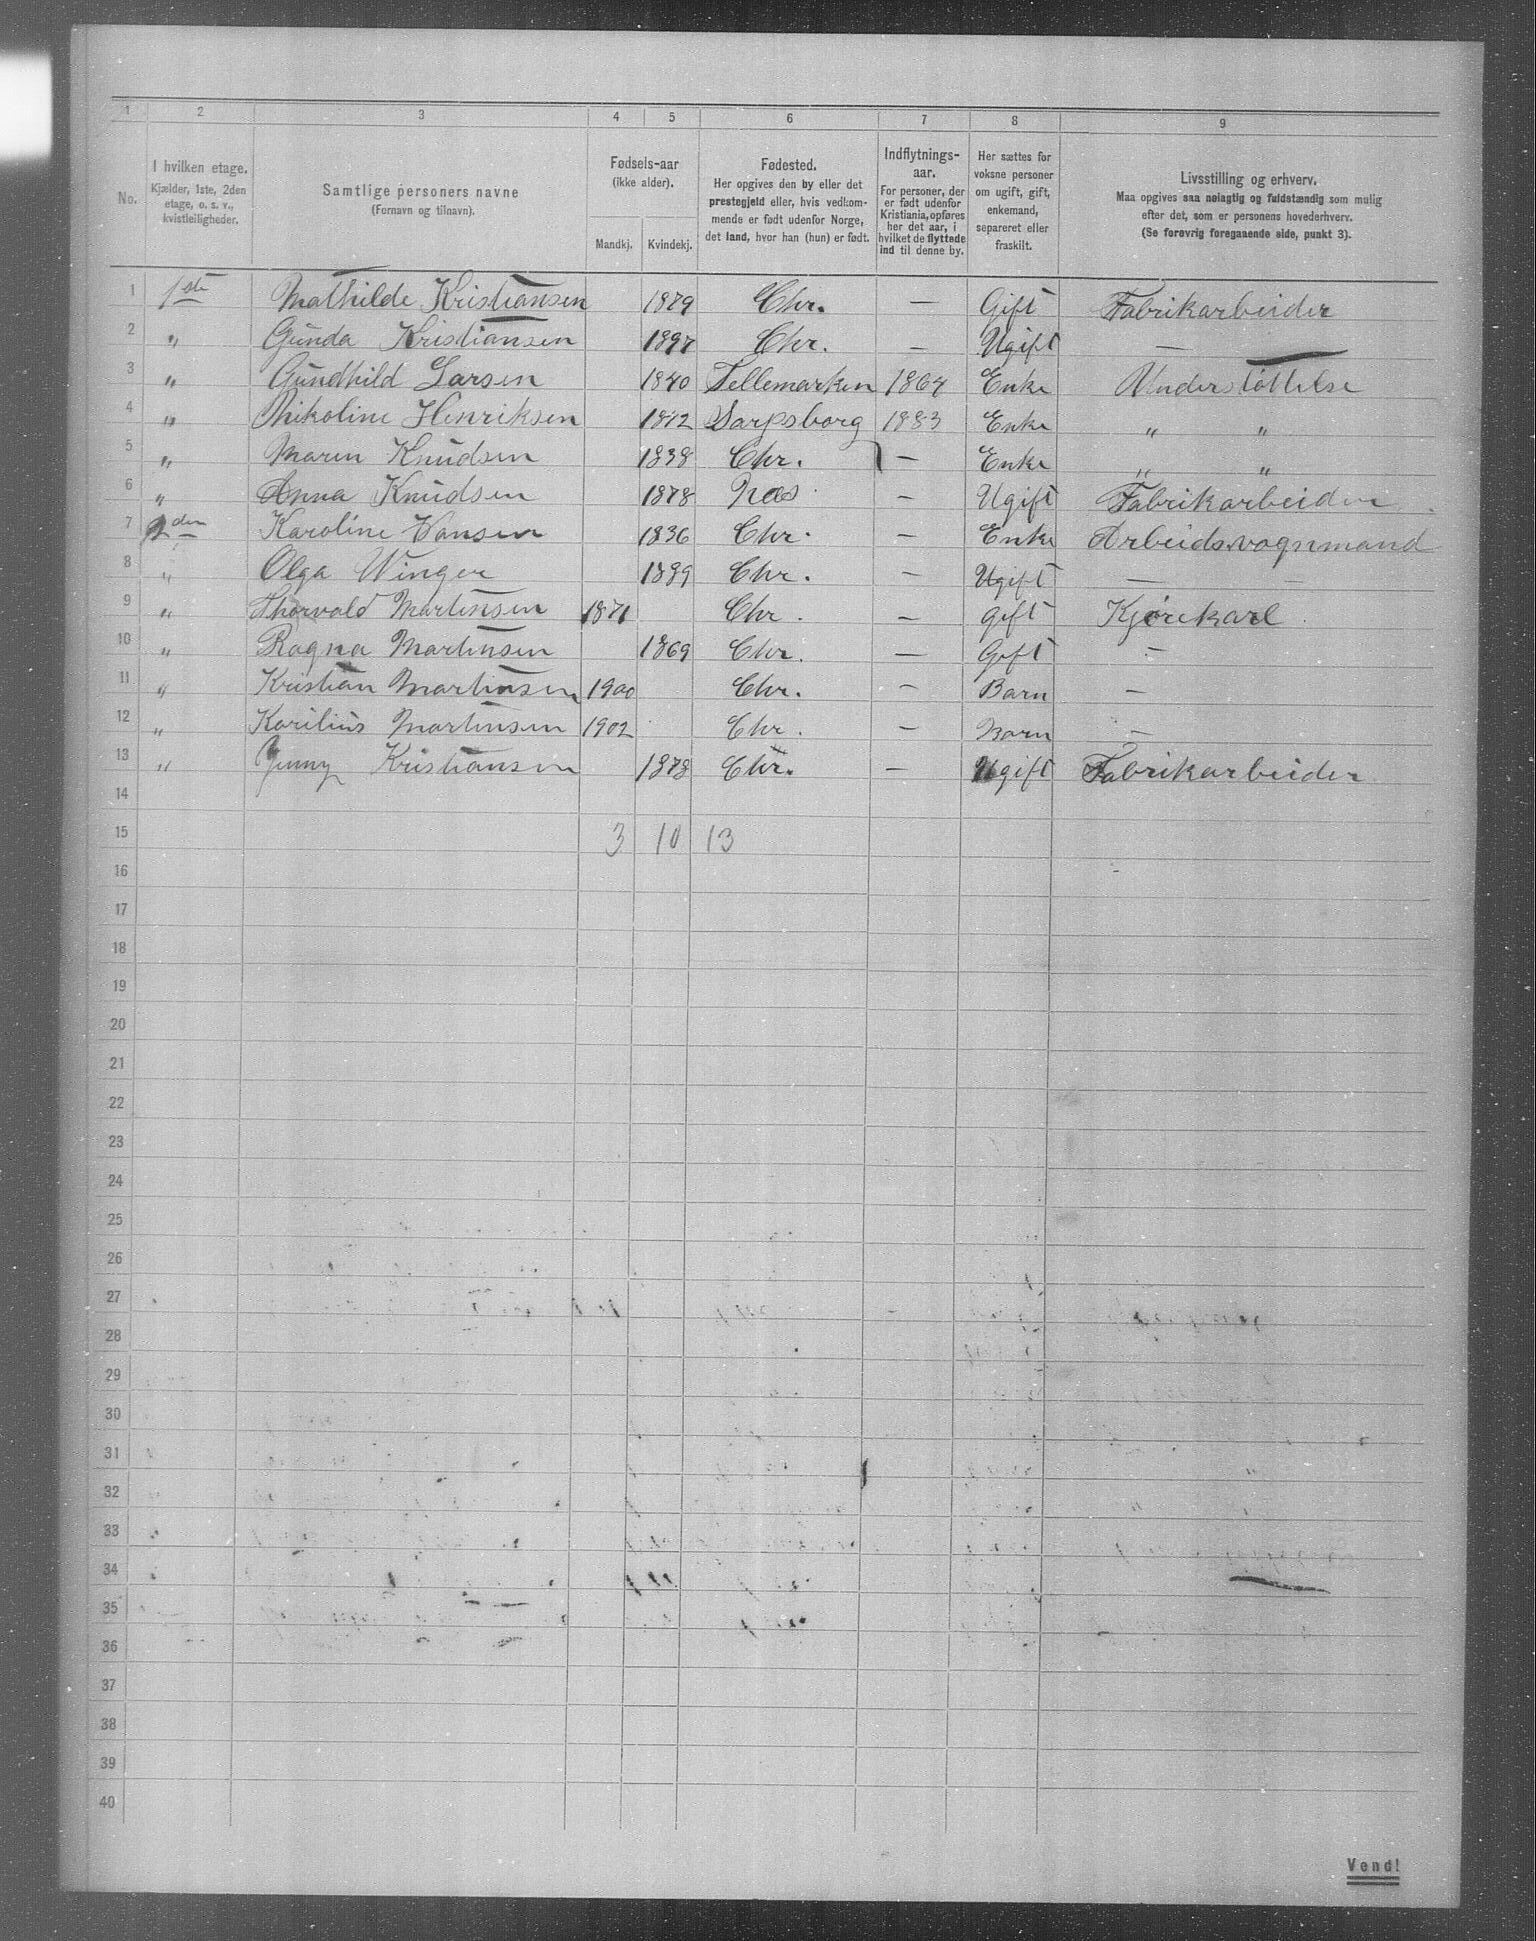 1 2 3 4 5 6 7 8 9
No.
I hvilken etage.
Kjælder, 1ste, 2den
etage, o. s. v.,
kvistleiligheder.
Samtlige personers navne
(Fornavn og tilnavn).
Fødsels-aar
(ikke alder).
Mandkj. Kvindekj.
Fødested.
Her opgives den by eller det
prestegjeld eller, hvis vedkom-
mende er født udenfor Norge,
det land, hvor han (hun) er født.
Indflytnings-
aar.
For personer, der
er født udenfor
Kristiania, opføres
her det aar, i
hvilket de flyttede
ind til denne by.
Her sættes for
voksne personer
om ugift, gift,
enkemand,
separeret eller
fraskilt.
Livsstilling og erhverv.
Maa opgives saa nøiagtig og fuldstændig som mulig
efter det, som er personens hovederhverv.
(Se forøvrig foregaaende side, punkt 3).
1 1ste Mathilde Kristiansen 1879 Chr. — Gift Fabrikarbeider
2 " Gunda Kristiansen 1897 Chr. — Ugift —
3 " Gundhild Larsen 1840 Tellemarken 1864 Enke Understøttelse
4 " Nikoline Henriksen 1842 Sarpsborg 1883 Enke " "
5 " Maren Knudsen 1838 Chr. — Enke " "
6 " Anna Knudsen 1878 Næs — Ugift Fabrikarbeider
7 2den Karoline Hansen 1836 Chr. — Enke Arbeidsvognmand
8 " Olga Winger 1899 Chr. — Ugift — —
9 " Thorvald Martinsen 1871 Chr. — gift Kjørekarl
10 " Ragna Martinsen 1869 Chr. — Gift —
11 " Kristian Martinsen 1900 Chr. — Barn —
12 " Karilius Martinsen 1902 Chr. — Barn —
13 " Jenny Kristiansen 1878 Chr. — Ugift Fabrikarbeider
14
15 3 10 13
16
17
18
19
20
21
22
23
24
25
26
27
28
29
30
31
32
33
34
35
36
37
38
39
40
Vend!